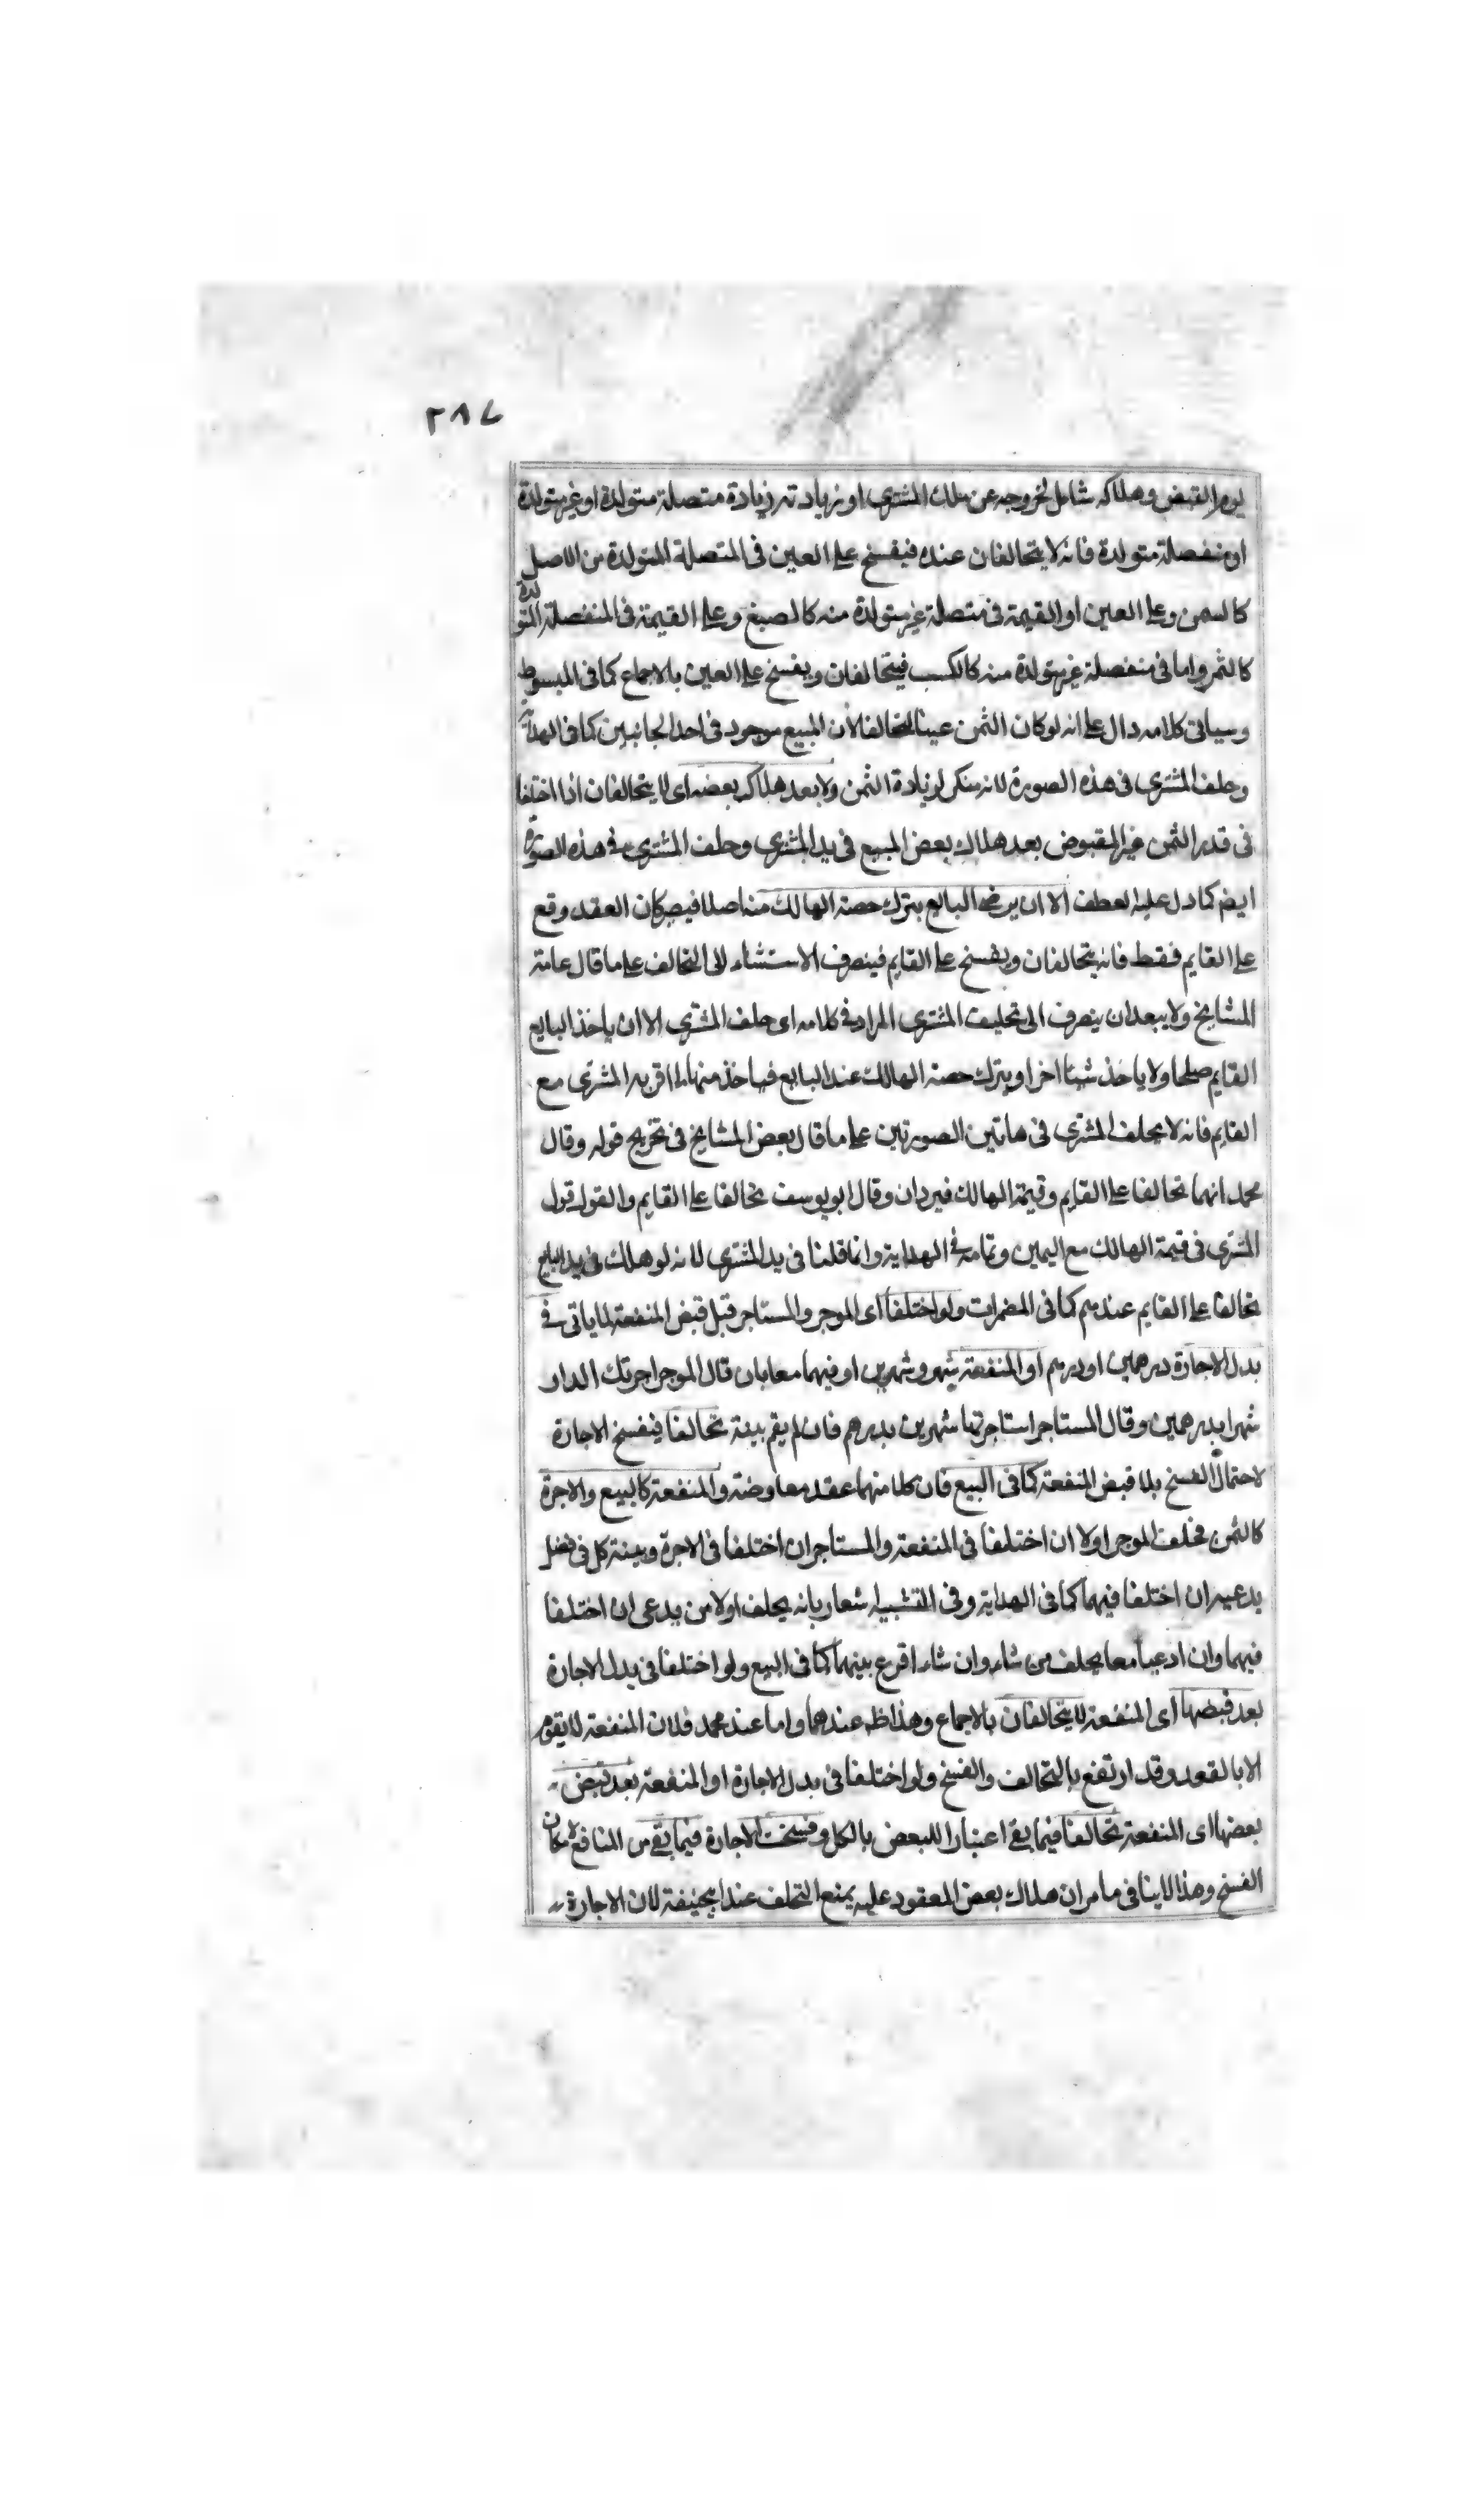 ٢٨٧
يوم القبض وهلاكه شامل لخروجه عن ملك المشترى او زيادته زيادة متصلة متولدة او غير متولدة
او منفصلة متولدة فانه لا يتحالفان عنده فيفسخ على العين فى المتصلة المتولدة من الاصل
كالسمن وعلى العين او القيمة فى متصلة غير متولدة منه كالصبغ وعلى القيمة فى المنفصلة المتولدة
كالثمر واما فى منفصلة غير متولدة منه كالكسب فيتحالفان ويفسخ على العين بالاجماع كما فى المبسوط
وسياتى كلامه دال على انه لو كان الثمن عينا تحالفا لان المبيع موجود فى احد الجانبين كما فى الهداية
وحلف المشترى فى هذه الصورة لانه منكر لزيادة الثمن ولا بعد هلاك بعضه اى لا يتحالفان اذا اختلفا
فى قدر الثمن غير المقبوض بعد هلاك بعض المبيع فى يد المشترى وحلف المشترى فى هذه الصورة
ايضم كما دل عليه العطف الا ان يرضى البايع بترك حصة الهالك منه اصلا فيصير كان العقد وقع
على القايم فقط فانه يتحالفان ويفسخ على القايم فينصرف الاستثناء الى التحالف على ما قال عامة
المشايخ ولا يبعد ان ينصرف الى تحليف المشترى المراد فى كلامه اى حلف المشترى الا ان ياخذ البايع
القايم صلحا ولا ياخذ شيئا اخر او يترك حصة الهالك عند البايع فياخذ منهما ما اقر به المشترى مع
القايم فانه لا يحلف المشترى فى هاتين الصورتين على ما قال بعض المشايخ فى تخريج قوله وقال
محمد انهما تحالفا على القايم وقيمة الهالك فيردان وقال ابو يوسف تحالفا على القايم والقول قول
المشترى فى قيمة الهالك مع اليمين وتمامه فى الهداية وانما قلنا فى يد المشترى لانه لو هلك فى يد البايع
تحالفا على القايم عندهم كما فى المضمرات ولو اختلفا اى الموجر والمستاجر قبل قبض المنفعة لما ياتى فى
بدل الاجارة درهمين او درهم او المنفعة شهر وشهرين او فيهما معا بان قال الموجر اجرتك الدار
شهرا بدرهمين وقال المستاجر استاجرتها شهرين بدرهم فان لم يقم بينة تحالفا فينفسخ الاجارة
لاحتمال الفسخ بلا قبض المنفعة كما فى البيع فان كلا منهما عقد معاوضة والمنفعة كالمبيع والاجرة
كالثمن فحلف الموجر اولا ان اختلفا فى المنفعة والمستاجر ان اختلفا فى الاجرة وبينة كل فى فضل
يدعيه ان اختلفا فيهما كما فى الهداية وفى التشبيه اشعار بانه يحلف اولا من يدعى ان اختلفا
فيهما وان ادعيا معا يحلف من شاء وان شاء اقرع بينهما كما فى البيع ولو اختلفا فى بدل الاجارة
بعد قبضها اى المنفعة لا يتحالفان بالاجماع وهذا ظه عندهما واما عند محمد فلان المنفعة لا يقوم
الا بالعقود وقد ارتفع بالتحالف والفسخ ولو اختلفا فى بدل الاجارة او المنفعة بعد قبض
بعضها اى المنفعة تحالفا فيما بقى اعتبارا للبعض بالكل وفسخت الاجارة فيما بقى من المنافع لامكان
الفسخ وهذا لا ينافى ما مر ان هلاك بعض المعقود عليه يمنع التحلف عند ابيحنيفة لان الاجارة